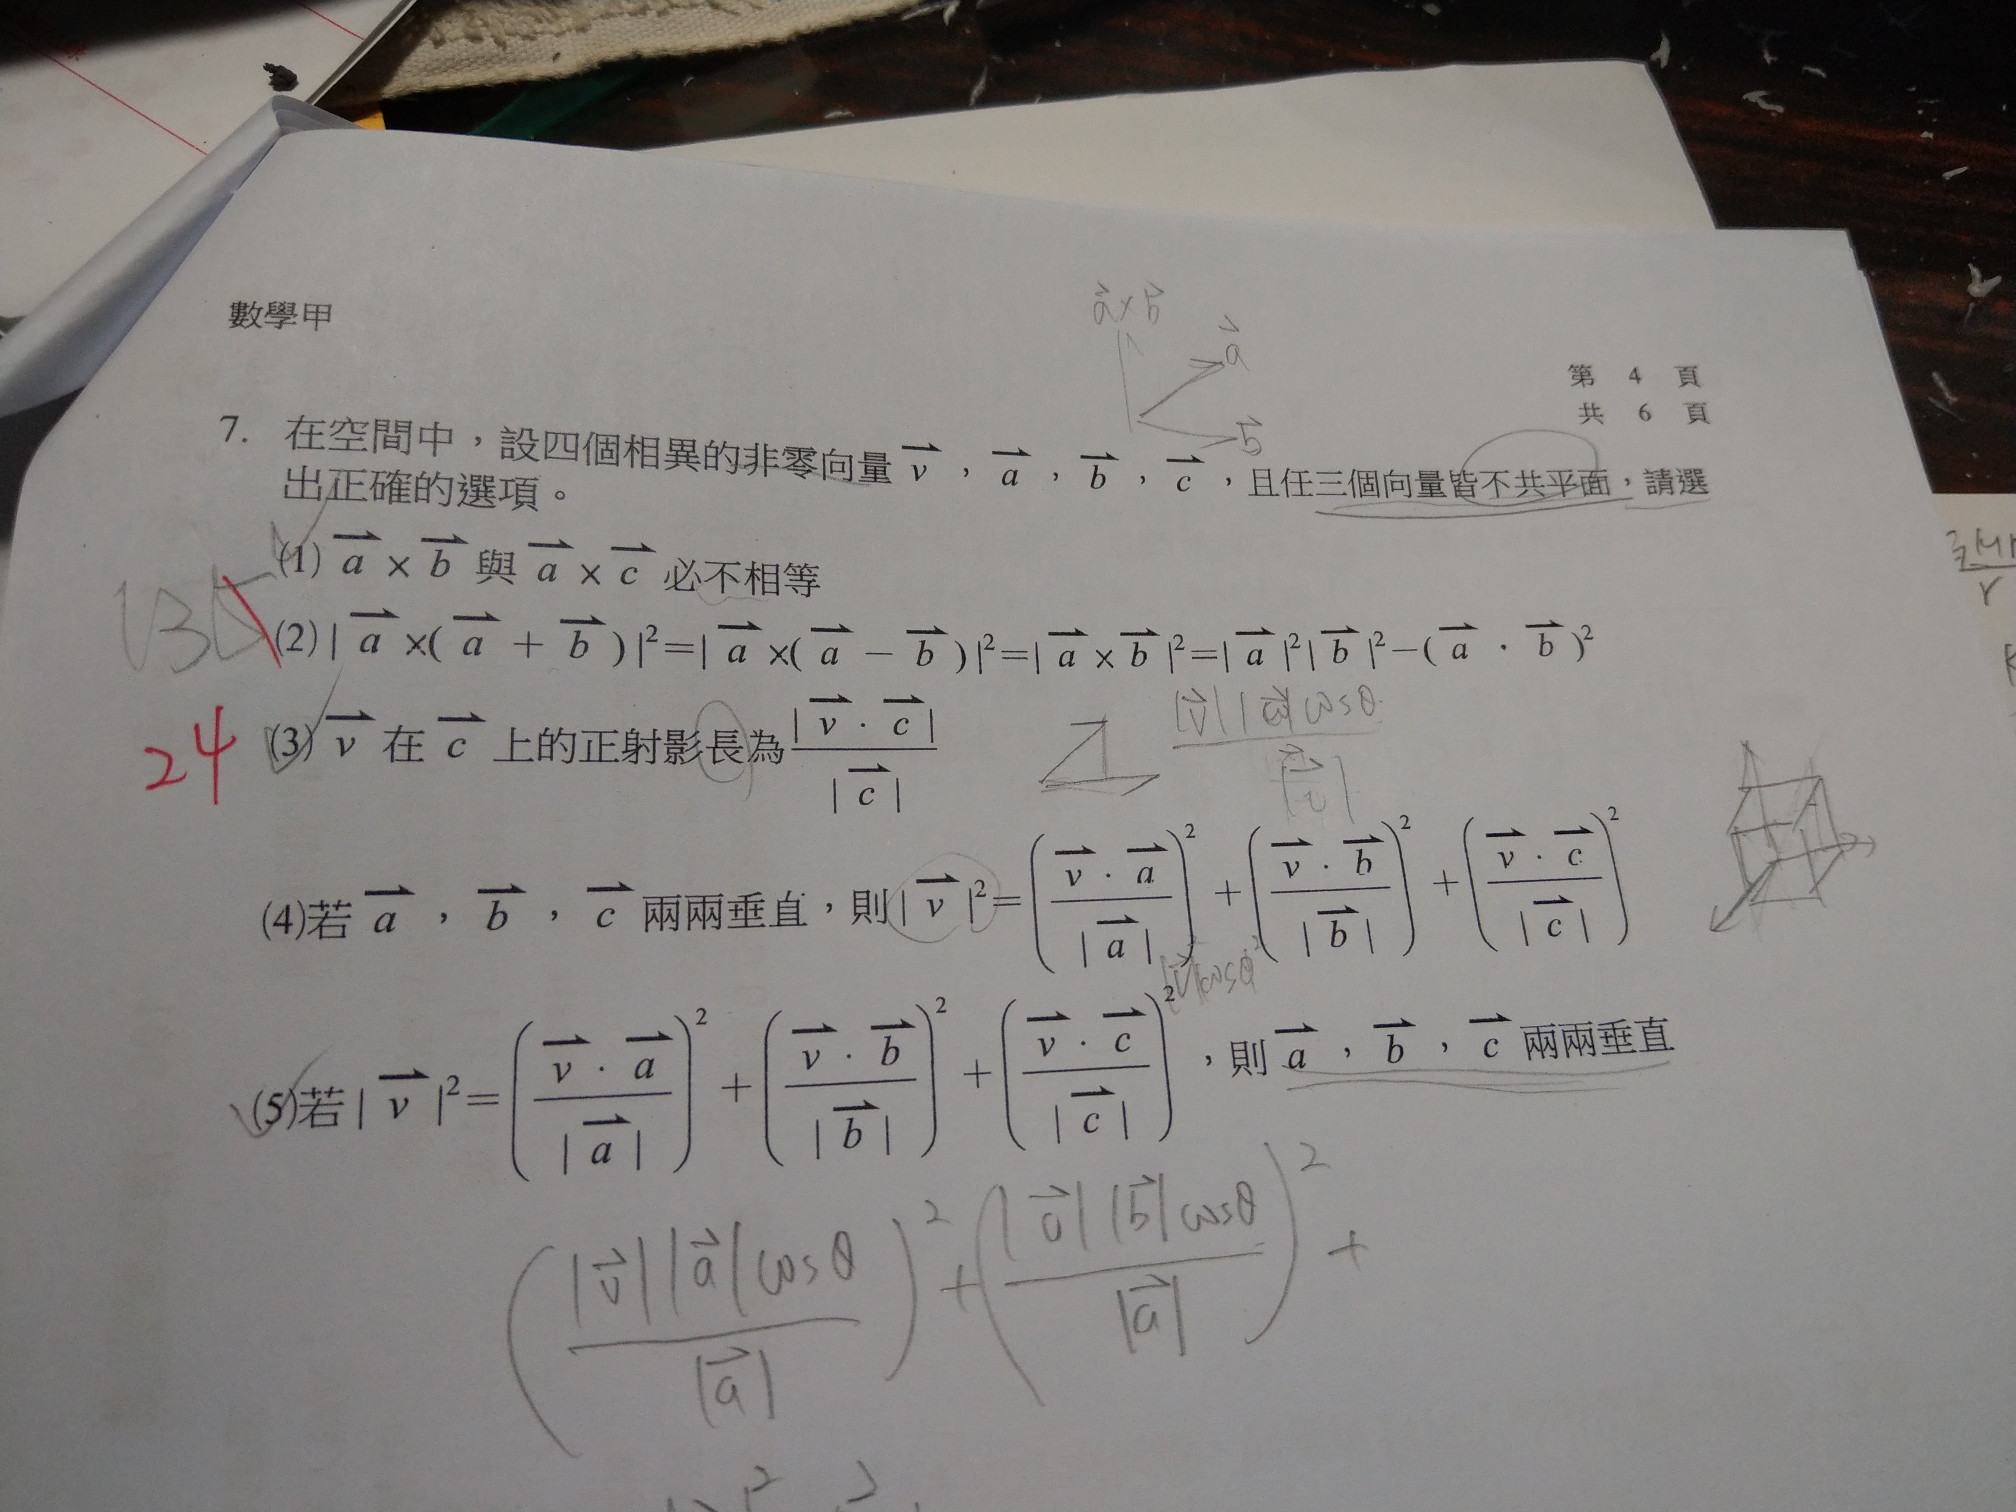 數學甲
第 4 頁
共 6 頁
a⃗×b⃗
a⃗
b⃗
7. 在空間中，設四個相異的非零向量 v⃗ ， a⃗ ， b⃗ ， c⃗ ，且任三個向量皆不共平面，請選
出正確的選項。
(1) a⃗ × b⃗ 與 a⃗ × c⃗ 必不相等
135
(2) | a⃗ ×( a⃗ + b⃗ )|²=| a⃗ ×( a⃗ − b⃗ )|²=| a⃗ × b⃗ |²=| a⃗ |²| b⃗ |²−( a⃗ · b⃗ )²
24
(3) v⃗ 在 c⃗ 上的正射影長為 | v⃗ · c⃗ | / | c⃗ |
(4)若 a⃗ ， b⃗ ， c⃗ 兩兩垂直，則| v⃗ |²=( v⃗ · a⃗ / | a⃗ | )²+( v⃗ · b⃗ / | b⃗ | )²+( v⃗ · c⃗ / | c⃗ | )²
(5)若| v⃗ |²=( v⃗ · a⃗ / | a⃗ | )²+( v⃗ · b⃗ / | b⃗ | )²+( v⃗ · c⃗ / | c⃗ | )²，則 a⃗ ， b⃗ ， c⃗ 兩兩垂直
( |v⃗||a⃗|cosθ / |a⃗| )²+( |v⃗||b⃗|cosθ / |a⃗| )²+